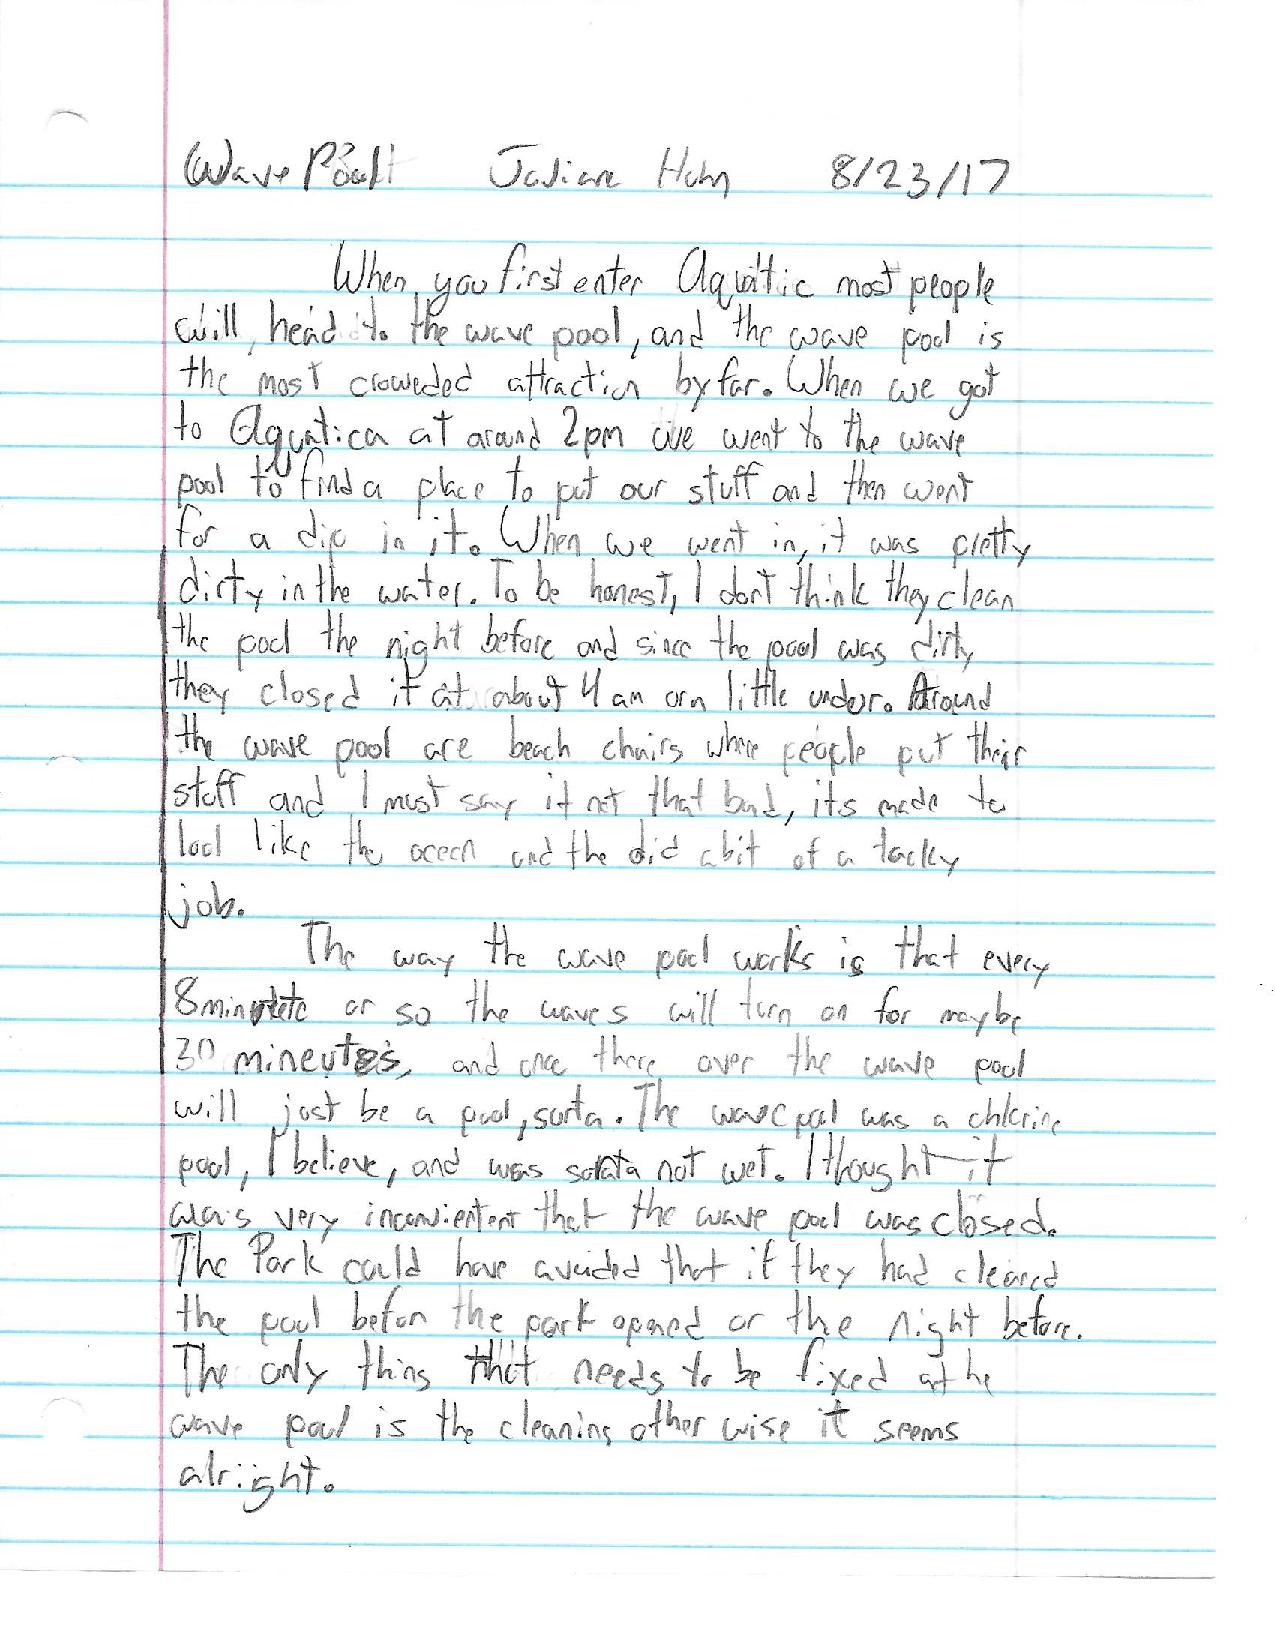 Wave Pool Julian Hahn 8/23/17
When you first enter Aquatic most people
will, head to the wave pool, and the wave pool is
the most crowded attraction by far. When we got
to Aquatica at around 2pm we went to the wave
pool to find a place to put our stuff and then went
for a dip in it. When we went in, it was pretty
dirty in the water. To be honest, I dont think they clean
the pool the night before and since the pool was dirty
they closed it at about 4 am orn little under. Around
the wave pool are beach chairs where people put their
stuff and I must say it not that bad, its made to
look like the ocean and the did a bit of a tacky
job.
The way the wave pool works is that every
8 minute or so the waves will turn on for maybe
30 mineutes, and once there over the wave pool
will just be a pool, sorta. The wave pool was a chlorine
pool, I believe, and was sorta not wet. I thought it
was very inconvientent that the wave pool was closed.
The Park could have avoided that if they had cleaned
the pool before the park opened or the night before.
The only thing that needs to be fixed at he
wave pool is the cleaning other wise it seems
alright.